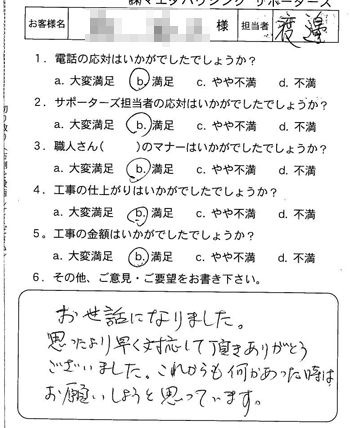 ㈱マエダハウジング サポーターズ
お客様名 様 担当者 渡邉
1．電話の応対はいかがでしたでしょうか？
a. 大変満足 b. 満足 c. やや不満 d. 不満
2．サポーターズ担当者の応対はいかがでしたでしょうか？
a. 大変満足 b. 満足 c. やや不満 d. 不満
3．職人さん( )のマナーはいかがでしたでしょうか？
a. 大変満足 b. 満足 c. やや不満 d. 不満
4．工事の仕上がりはいかがでしたでしょうか？
a. 大変満足 b. 満足 c. やや不満 d. 不満
5。工事の金額はいかがでしたでしょうか？
a. 大変満足 b. 満足 c. やや不満 d. 不満
6．その他、ご意見・ご要望をお書き下さい。
お世話になりました。
思ったより早く対応して頂きありがとう
ございました。これからも何かあった時は
お願いしようと思っています。